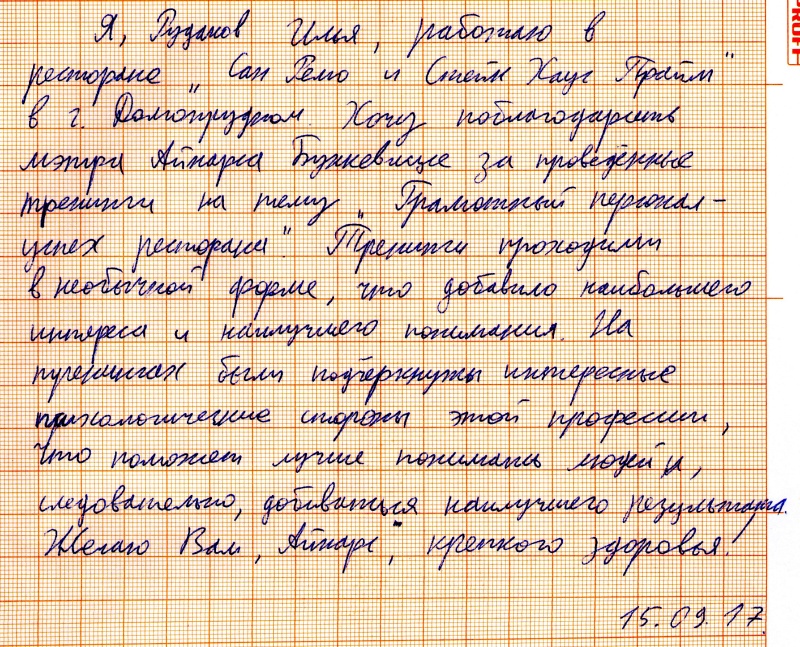 Я, Рудаков Илья, работаю в
ресторане „Сан Ремо и Стейк Хаус Прайм"
в г. Долгопрудном. Хочу поблагодарить
мэтра Айнарса Бункевице за проведённые
тренинги на тему „Грамотный персонал -
успех ресторана". Тренинги проходили
в необычной форме, что добавило наибольшего
интереса и наилучшего понимания. На
тренингах были подчеркнуты интересные
психологические стороны этой профессии,
что поможет лучше понимать людей и,
следовательно, добиваться наилучшего результата.
Желаю Вам, Айнарс, крепкого здоровья.
15.09.17